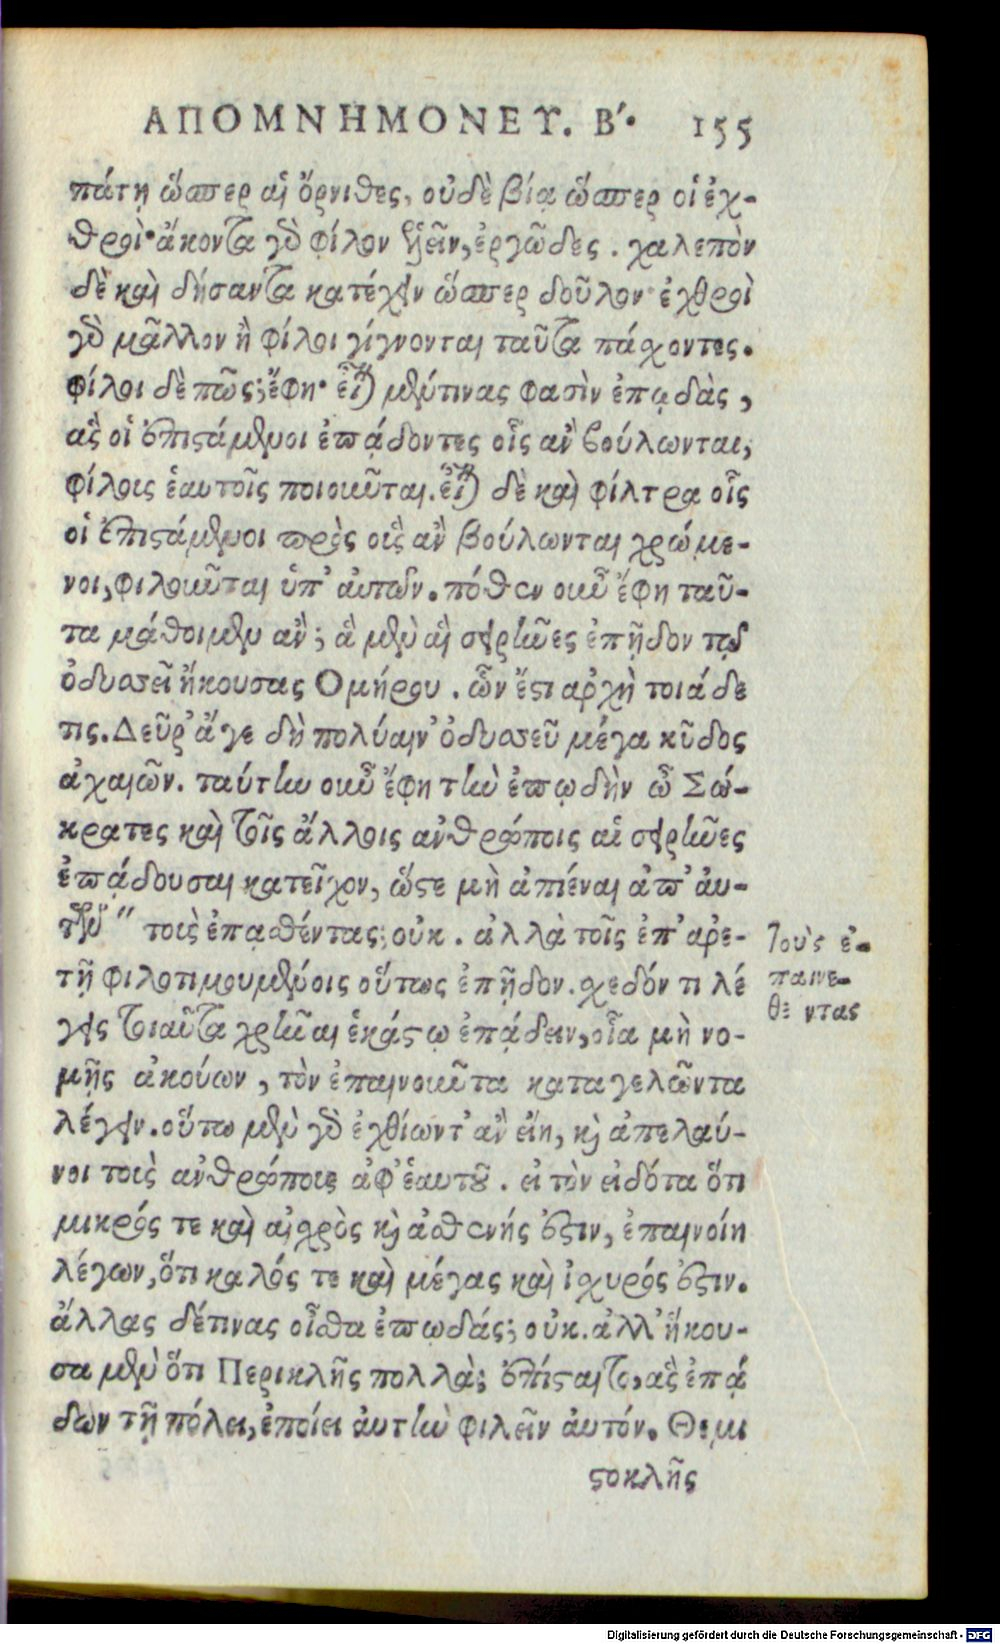 ΑΠΟΜΝΗΜΟΝΕΥ. Β΄. 155
πάτῃ ὥσπερ αἱ ὄρνιθες, οὐδὲ βίᾳ ὥσπερ οἱ ἐχ-
θροί· ἄκοντα γὸ φίλον ἑλεῖν, ἐργῶδες. χαλεπὸν
δὲ καὶ δήσαντα κατέχειν ὥσπερ δοῦλον· ἐχθροὶ
γὸ μᾶλλον ἢ φίλοι γίγνονται ταῦτα πάχοντες.
φίλοι δὲ πῶς; ἔφη· εἶναι μέν τινας φασὶν ἐπῳδὰς,
ἃς οἱ ἐπιστάμενοι ἐπᾴδοντες οἷς ἂν βούλωνται,
φίλους ἑαυτοῖς ποιοῦνται. εἶναι δὲ καὶ φίλτρα οἷς
οἱ ἐπιστάμενοι πρὸς οὓς ἂν βούλωνται χρώμε-
νοι, φιλοῦνται ὑπ' αὐτῶν. πόθεν οὖν ἔφη ταῦ-
τα μάθοιμεν ἄν; ἃ μὲν αἱ σειρῆνες ἐπῇδον τῷ
ὀδυσσεῖ ἤκουσας Ομήρου. ὧν ἔστι ἀρχὴ τοιάδε
τις. Δεῦρ' ἄγε δὴ πολύαιν' ὀδυσσεῦ μέγα κῦδος
ἀχαιῶν. ταύτην οὖν ἔφη τὴν ἐπῳδὴν ὦ Σώ-
κρατες καὶ τοῖς ἄλλοις ἀνθρώποις αἱ σειρῆνες
ἐπᾴδουσαι κατεῖχον, ὥστε μὴ ἀπιέναι ἀπ' αὐ-
τῶν " τοὺς ἐπᾳθέντας; οὐκ. ἀλλὰ τοῖς ἐπ' ἀρε-
τῇ φιλοτιμουμένοις οὕτως ἐπῇδον. χεδόν τι λέ
γεις τοιαῦτα χρῆναι ἑκάστῳ ἐπᾴδειν, οἷα μὴ νο-
μῇς ἀκούων, τὸν ἐπαινοῦντα καταγελῶντα
λέγειν. οὕτω μὲν γὸ ἐχθίωντ' ἂν εἴη, καὶ ἀπελαύ-
νοι τοὺς ἀνθρώπους ἀφ' ἑαυτοῦ. εἰ τὸν εἰδότα ὅτι
μικρός τε καὶ αἰχρὸς καὶ ἀσθενής ἐστιν, ἐπαινοίη
λέγων, ὅτι καλός τε καὶ μέγας καὶ ἰχυρός ἐστιν.
ἄλλας δέ τινας οἶσθα ἐπωδάς; οὐκ. ἀλλ' ἤκου-
σα μὲν ὅτι Περικλῆς πολλὰς ἐπίσταιτο, ἃς ἐπᾴ
δων τῇ πόλει, ἐποίει αὐτὴν φιλεῖν αὐτόν. Θεμι
στοκλῆς
Τοὺς ἐ-
παινε-
θέντας
Digitalisierung gefördert durch die Deutsche Forschungsgemeinschaft - DFG